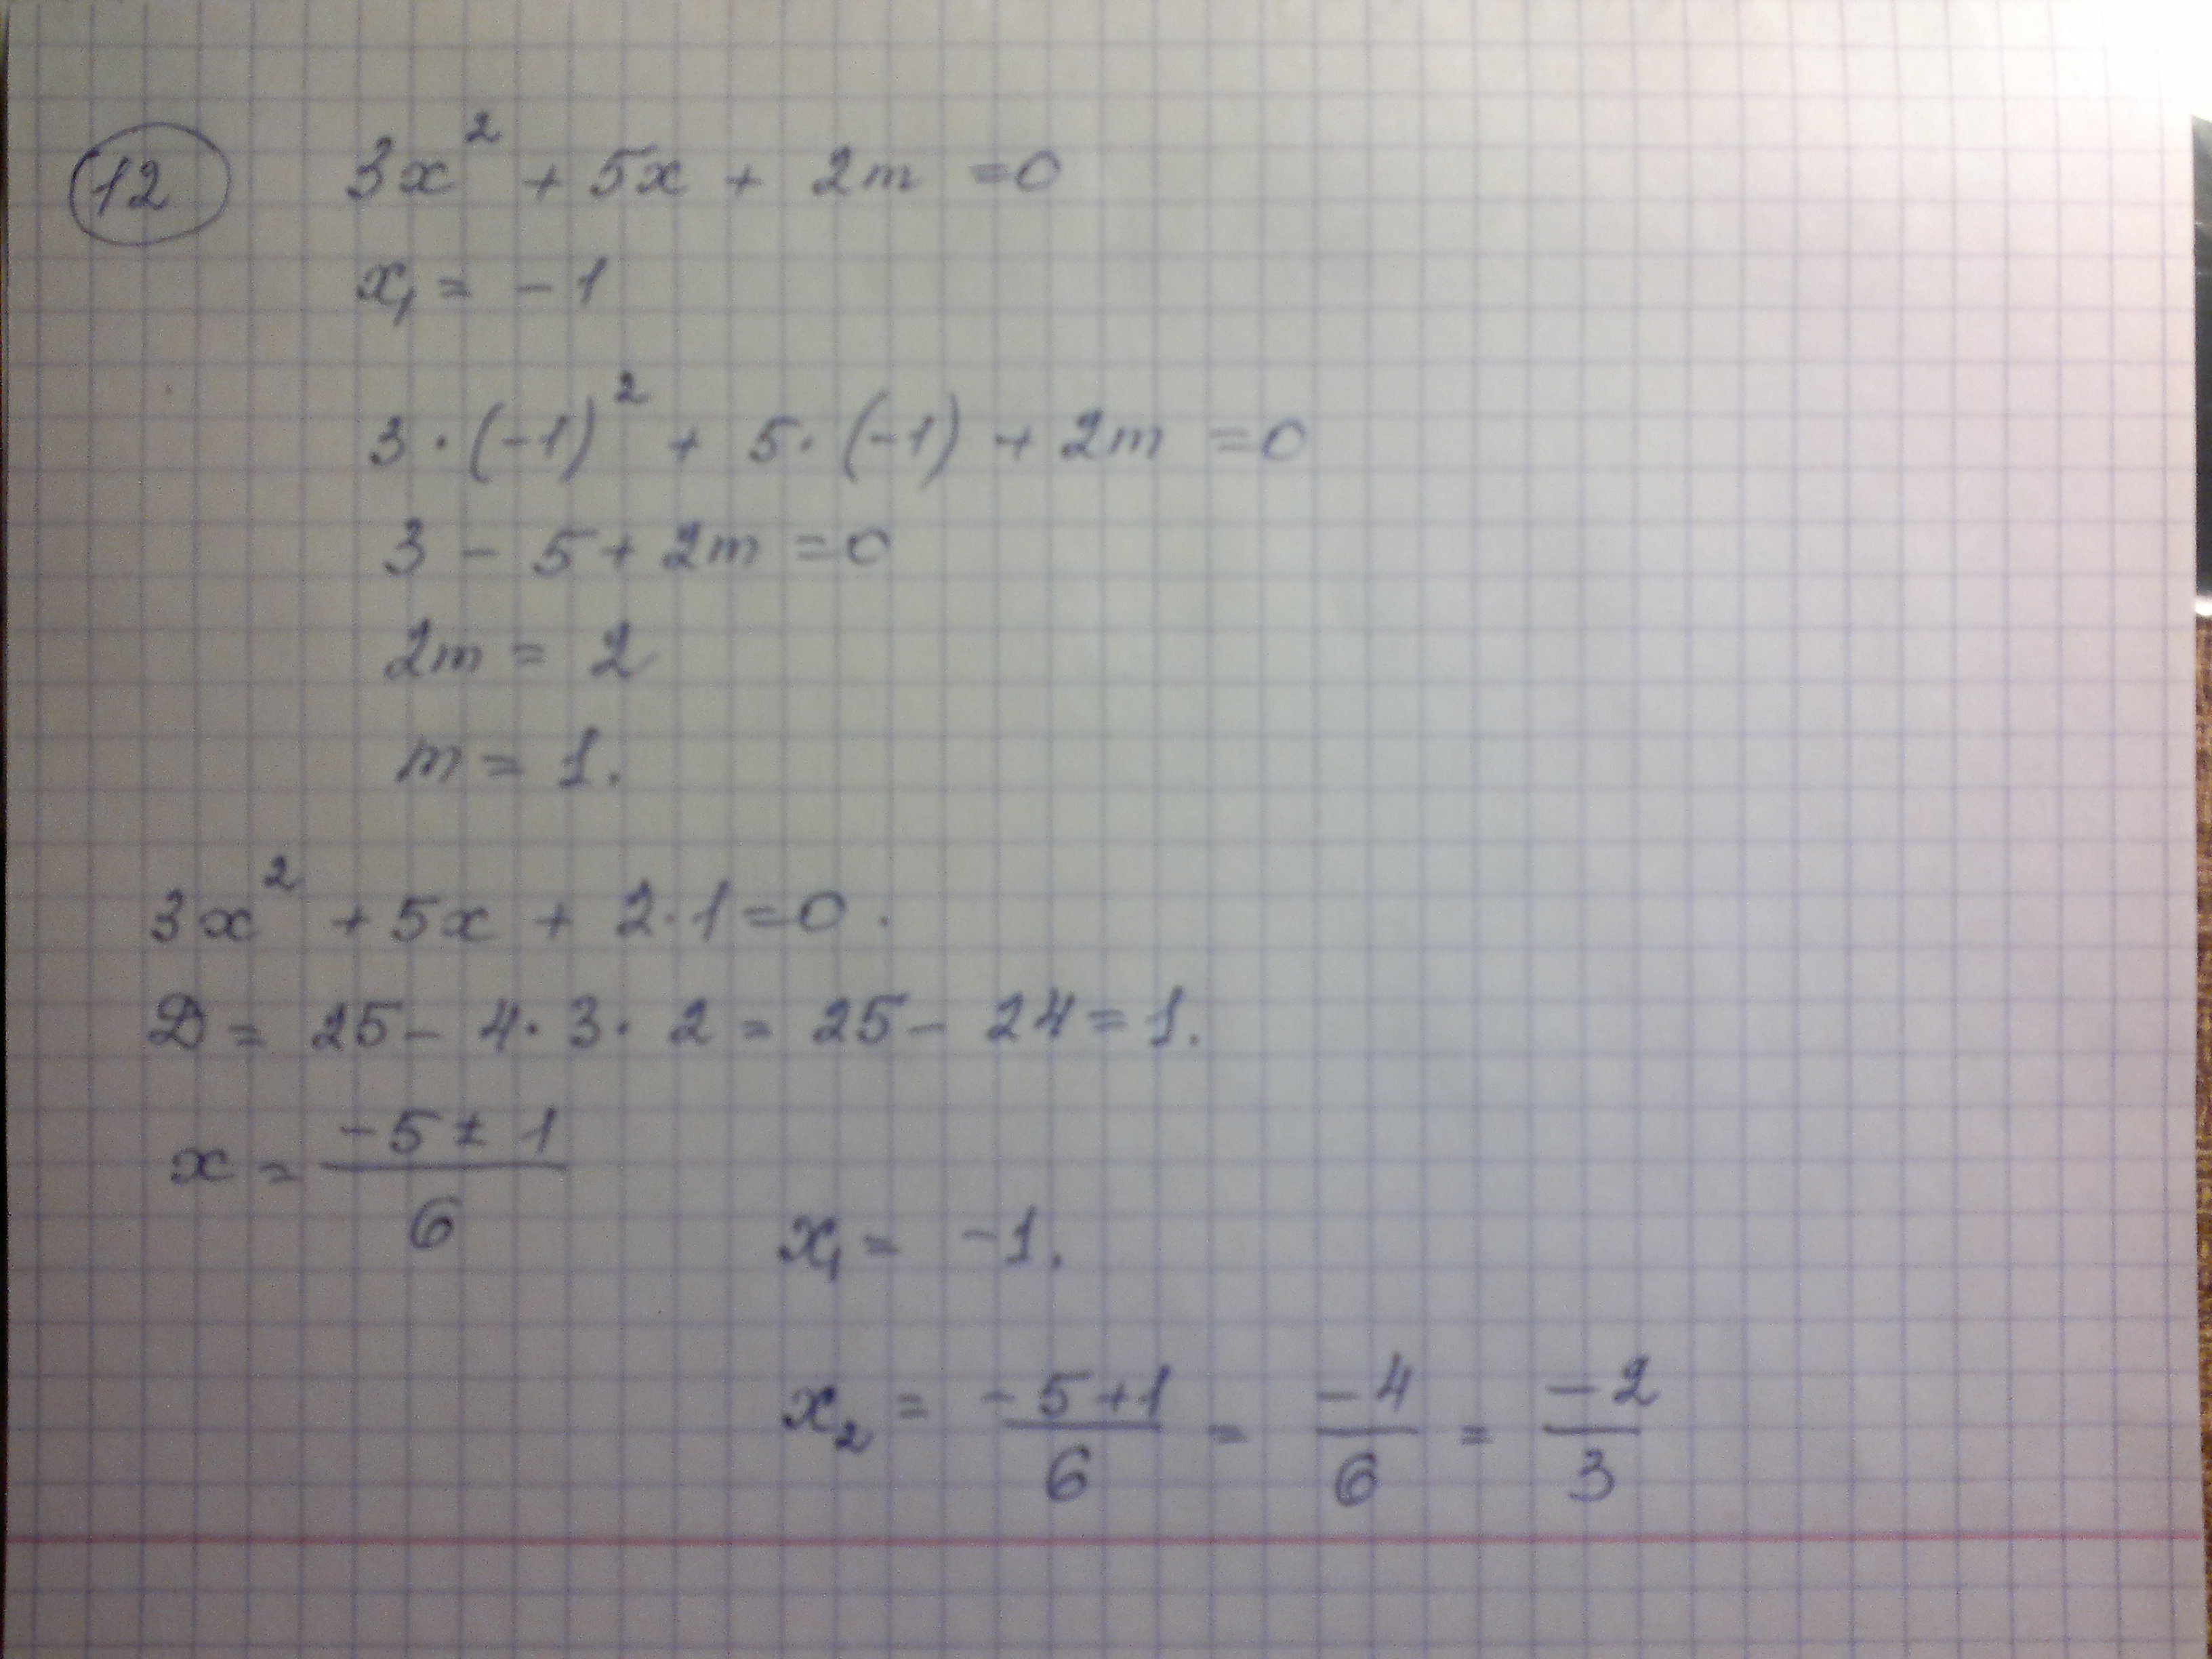 12 3x² + 5x + 2m = 0
x₁ = -1
3 · (-1)² + 5 · (-1) + 2m = 0
3 - 5 + 2m = 0
2m = 2
m = 1.
3x² + 5x + 2 · 1 = 0.
D = 25 - 4 · 3 · 2 = 25 - 24 = 1.
x = (-5 ± 1)/6
x₁ = -1.
x₂ = (-5+1)/6 = -4/6 = -2/3